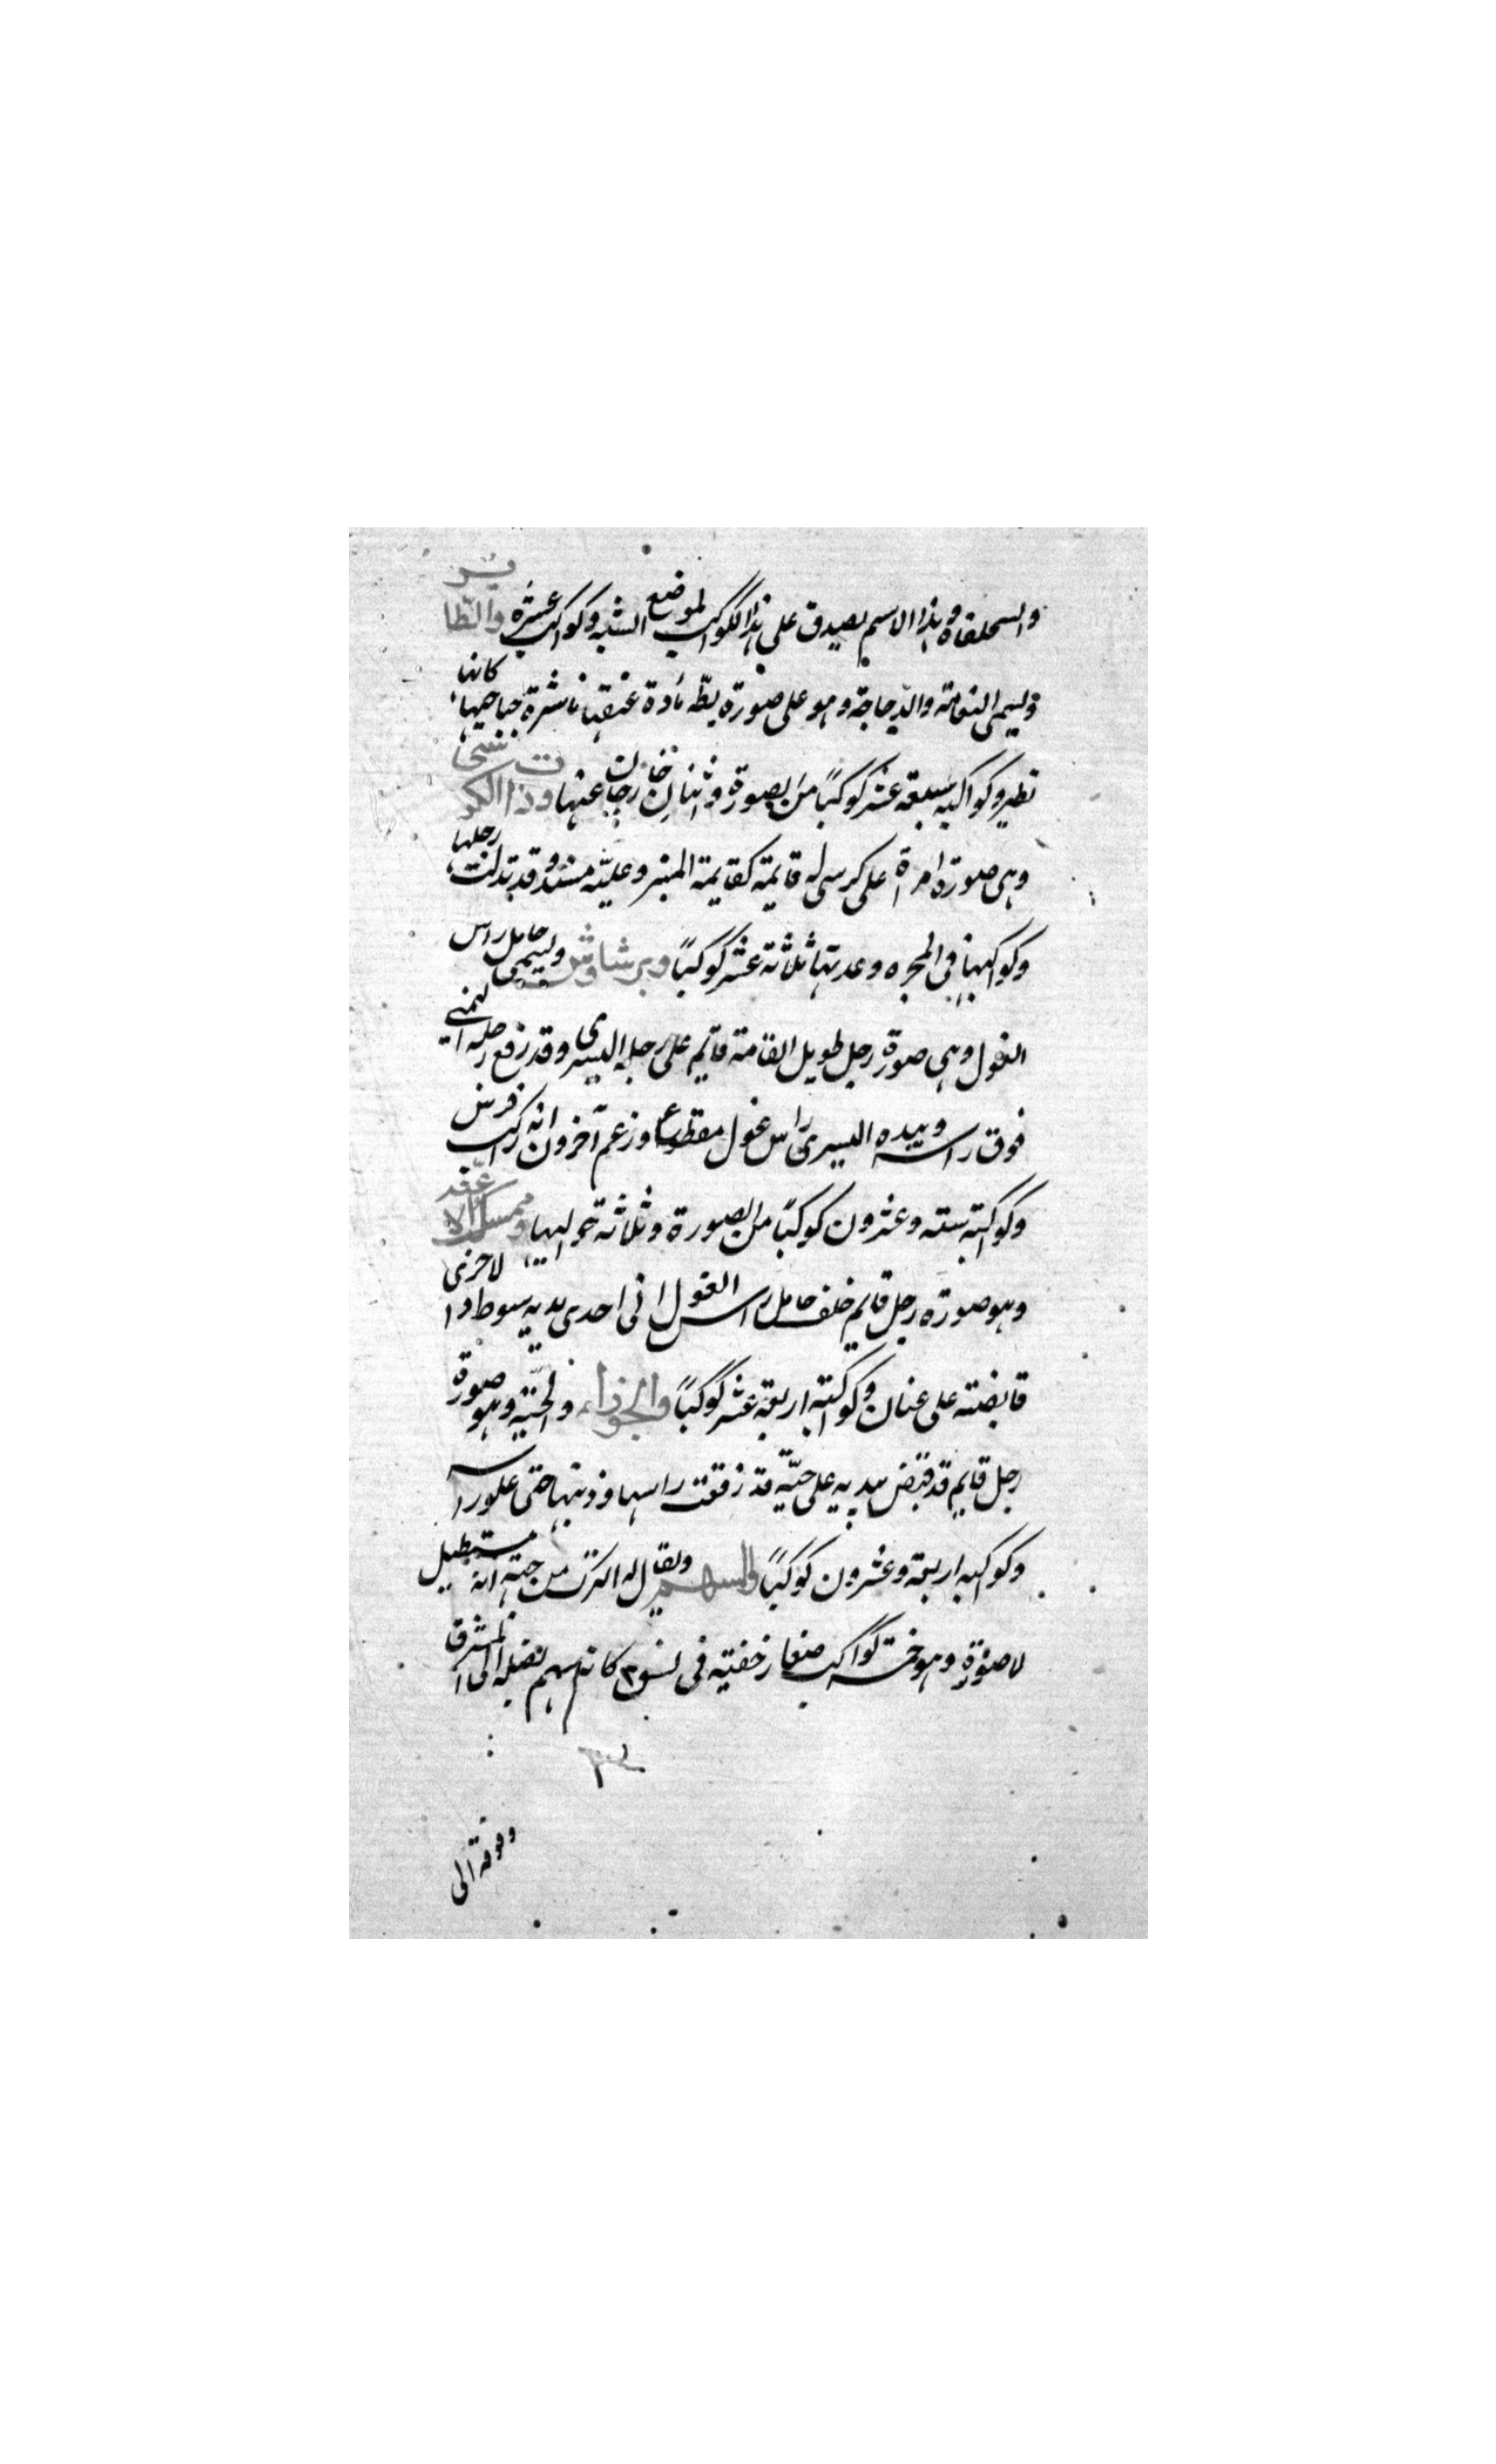 والسحلفاه وهذا الاسم يصدق على هذا الكواكب لموضع الشبه وكواكب عشرة والطاير
ويسمى النعامة والدجاجة وهو على صورة بطة مادة عنقها ناشرة جناحيها كانها
تطير وكواكبه سبعة عشر كوكبًا من الصورة واثنان خارجات عنها وذات الكرسى
وهى صورة امراة على كرسى له قايمة كقايمة المنبر وعليه مسند وقد تدلت رجلها
وكواكبها فى المجره وعدتها ثلاثة عشر كوكبًا وبرشاوش ويسمى حامل راس
الغول وهى صورة رجل طويل القامة قايم على رجله اليسرى وقد رفع رجله اليمنى
فوق راسه وبيده اليسرى راس غول مقطوع وزعم آخرون انه راكب فرس
وكواكبه ستة وعشرون كوكبًا من الصورة وثلاثة حواليها وممسك الاعنة
وهو صورة رجل قايم خلف حامل راس الغول فى احدى يديه سوط والاخرى
قابضة على عنان وكواكبه اربعة عشر كوكبًا والجوزاء والحية وهو صورة
رجل قايم قد قبض بيديه على حية قد رفعت راسها وذنبها حتى علو راسه
وكواكبه اربعة وعشرون كوكبًا والسهم ويقال له من جهة انه مستطيل
لا صورة وهو خمسة كواكب صغار خفية فى كانه سهم نصله الى المشرق
وفوقه الى